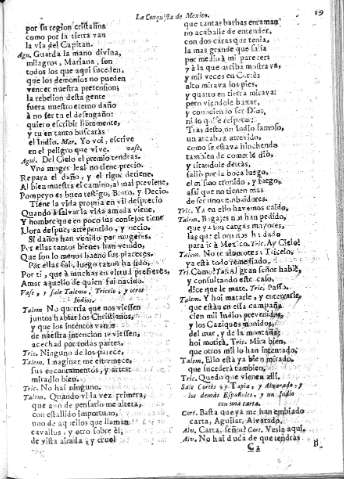 La Conquista de Mexico. 19
por su region cristalina
como por la tierra van
la via del Capitan.
Agu. Guarda la mano divina,
milagros, Mariana, son
todos los que aqui suceden,
que los demonios no pueden
vencer nuestra pretension:
la rebelion desta gente
fuera nuestro eterno daño
à no ser tu el desengaño:
quiero escribir libremente,
y tu en tanto buscaràs
el Indio. Mar. Yo voi, escrive
en el peligro que vive. vase.
Agu. Del Cielo el premio tendras.
Una muger leal no tiene precio.
Repara el daño, y el rigor detiene.
Al bien muestra el camino, al mal previene,
Pompeyo es buen testigo, Bruto, y Decio.
Tiene la vida propria en vil desprecio
Quando à salvar la vida amada viene,
Y hombre que en poco sus consejos tiene
Llora despues arrepentido, y necio.
Si daños han venido por mugeres,
Por ellas tambien bienes han venido,
Que son lo menos bueno sus placeres.
Por ellas fui, luego tambien ha sido,
Por ti, que à muchas en virtud prefieres,
Amar aquello de quien fui nacido.
Vase, y sale Talemo, Tricelo, y otros
Indios.
Talem. No querria que nos viessen
juntos hablar los Christianos,
y que los intentos vanos
de nuestra intencion tuviessen,
acechad por todas partes.
Tric. Ninguno de los parece.
Talem. Imaginar me enternece,
sus encantamentos, y artes:
miradlo bien.
Tric. No hai ninguno.
Talem. Quando vi la vez primera,
que aun de pensarlo me altera,
con estallido importuno,
uno de aquellos que llaman
cavallos, y otro sobre èl,
de vista airada, y cruel
que tantas barbas erraman
no acaballe de entender,
con dos caras que tenia,
la mas grande que salia
por medida mi parecer
y à la que arriba mostrava,
y mil veces en Cortès
alto mirava los pies,
y quatro en tierra mirava:
pero viendole baxar,
y conociendo ser Dios,
Tras desto, un Indio famoso,
un arcabuz atrevido,
como se estava hinchendo
tambien de comer le diò,
y tirandole detràs,
saliò por la boca luego,
el mismo tronido, y fuego,
assi que no tienen mas
de ser unos embaidores.
Tric. Ya en ello havemos caido,
Talem. Bagajes nos han pedido,
que vayan cargas mayores,
las que el otro nos ha dado
para ir à Mexico. Tric. Ay Cielo!
Talem. No te alborotes Tricelo,
ya està todo remediado,
Tri. Como? Tal. Al gran señor hablè,
y consultando este caso,
dice que le mate. Tric. Passa.
Talem. Y hoi matarle, y creeràslo,
que estàn en esta campaña
cien mil Indios prevenidos,
y los Caziques unidos,
del mar, y de la montaña:
hoi moriràn. Tric. Mira bien,
que otros mil lo han intentado.
Talem. Ello està ya bien mirado,
que sucederà tambien.
Tric. Quedo que vienen alli.
Sale Cortès, y Tapia, y Alvarado, y
los demàs Españoles, y un Indio
con una carta.
Cort. Basta que ya me han embiado
carta, Aguilar, Alvarado,
Alv. Carta, señor? Cort. Vesla aqui.
Alv. No hai duda de que tendràs
C2